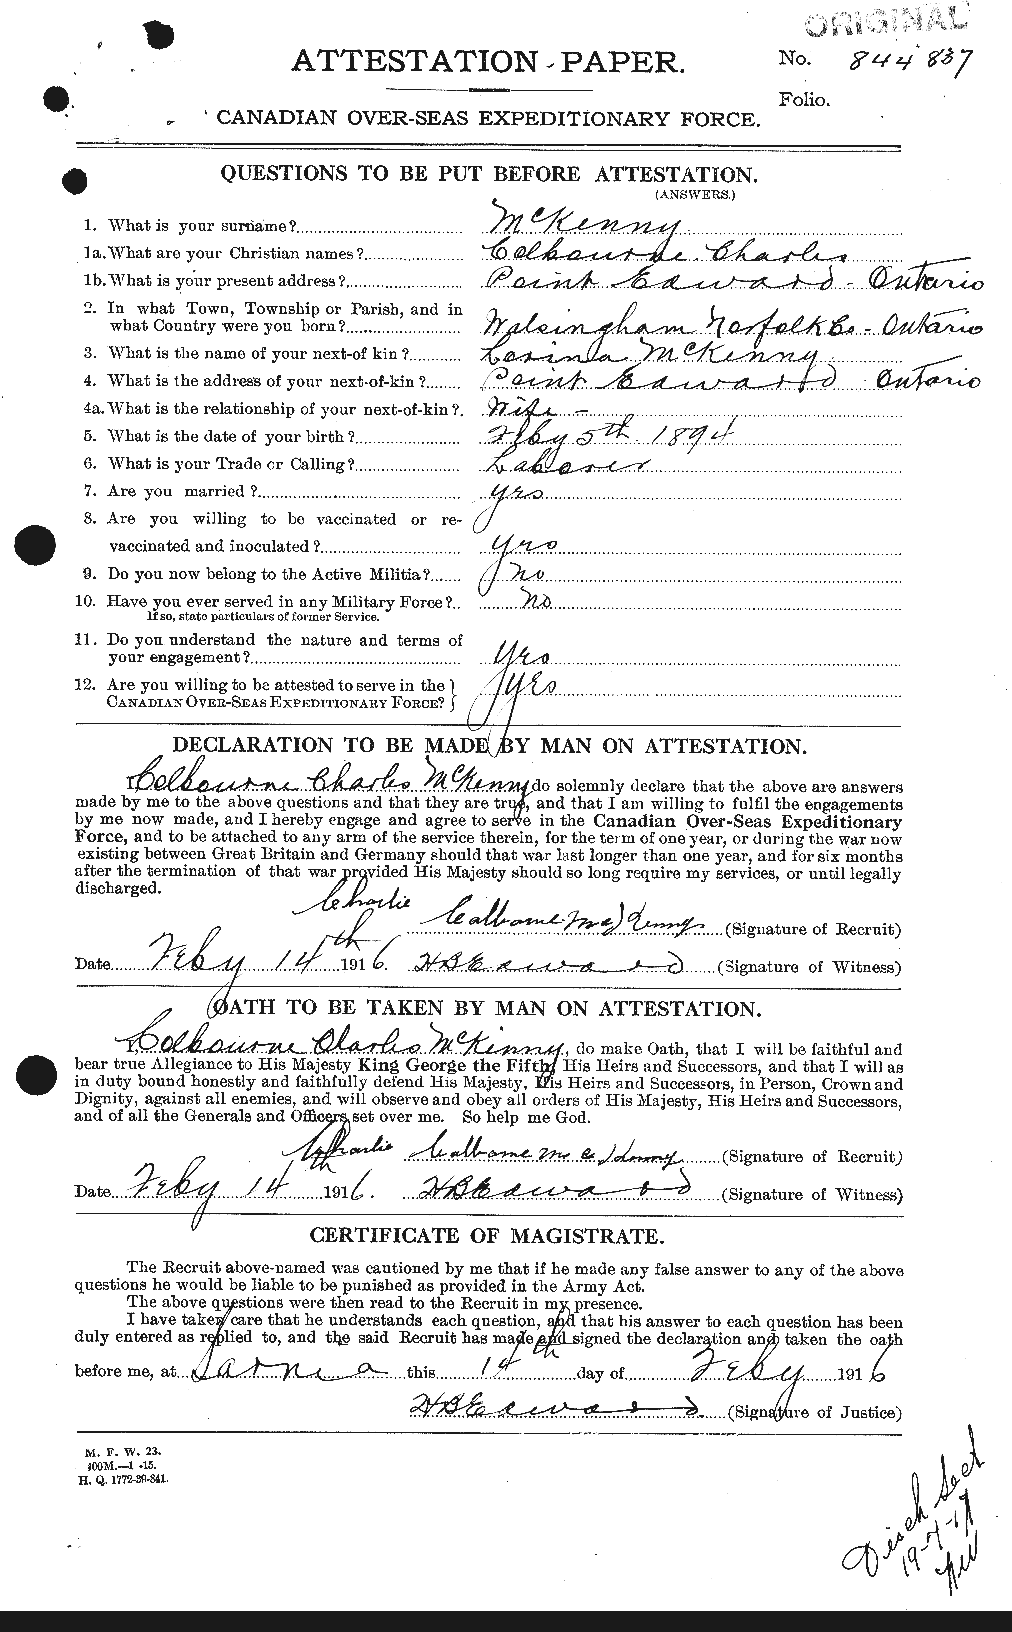 ORIGINAL
ATTESTATION PAPER.
No. 844837
Folio.
CANADIAN OVER-SEAS EXPEDITIONARY FORCE.
QUESTIONS TO BE PUT BEFORE ATTESTATION.
(ANSWERS.)
1. What is your surname? McKenny
1a. What are your Christian names? Colbourne Charles
1b. What is your present address? Point Edward - Ontario
2. In what Town, Township or Parish, and in
what Country were you born? Walsingham Norfolk Co - Ontario
3. What is the name of your next-of kin? McKenny
4. What is the address of your next-of-kin? Point Edward Ontario
4a. What is the relationship of your next-of-kin? Wife -
5. What is the date of your birth? Feby 5th 1894
6. What is your Trade or Calling? Laborer
7. Are you married? yes
8. Are you willing to be vaccinated or re-
vaccinated and inoculated? yes
9. Do you now belong to the Active Militia? no
10. Have you ever served in any Military Force? no
If so, state particulars of former Service.
11. Do you understand the nature and terms of
your engagement? yes
12. Are you willing to be attested to serve in the
CANADIAN OVER-SEAS EXPEDITIONARY FORCE? yes
DECLARATION TO BE MADE BY MAN ON ATTESTATION.
I, Colbourne Charles McKenny do solemnly declare that the above are answers
made by me to the above questions and that they are true, and that I am willing to fulfil the engagements
by me now made, and I hereby engage and agree to serve in the Canadian Over-Seas Expeditionary
Force, and to be attached to any arm of the service therein, for the term of one year, or during the war now
existing between Great Britain and Germany should that war last longer than one year, and for six months
after the termination of that war provided His Majesty should so long require my services, or until legally
discharged.
Charlie Calborne McKenny (Signature of Recruit)
Date Feby 14th 1916. (Signature of Witness)
OATH TO BE TAKEN BY MAN ON ATTESTATION.
I, Colbourne Charles McKenny, do make Oath, that I will be faithful and
bear true Allegiance to His Majesty King George the Fifth, His Heirs and Successors, and that I will as
in duty bound honestly and faithfully defend His Majesty, His Heirs and Successors, in Person, Crown and
Dignity, against all enemies, and will observe and obey all orders of His Majesty, His Heirs and Successors,
and of all the Generals and Officers set over me. So help me God.
Charlie Calborne McKenny (Signature of Recruit)
Date Feby 14th 1916. (Signature of Witness)
CERTIFICATE OF MAGISTRATE.
The Recruit above-named was cautioned by me that if he made any false answer to any of the above
questions he would be liable to be punished as provided in the Army Act.
The above questions were then read to the Recruit in my presence.
I have taken care that he understands each question, and that his answer to each question has been
duly entered as replied to, and the said Recruit has made and signed the declaration and taken the oath
before me, at Sarnia this 14th day of Feby 1916
(Signature of Justice)
M. F. W. 23.
400M.—1-15.
H. Q. 1772-39-841.
Disch Sect
19-7-17